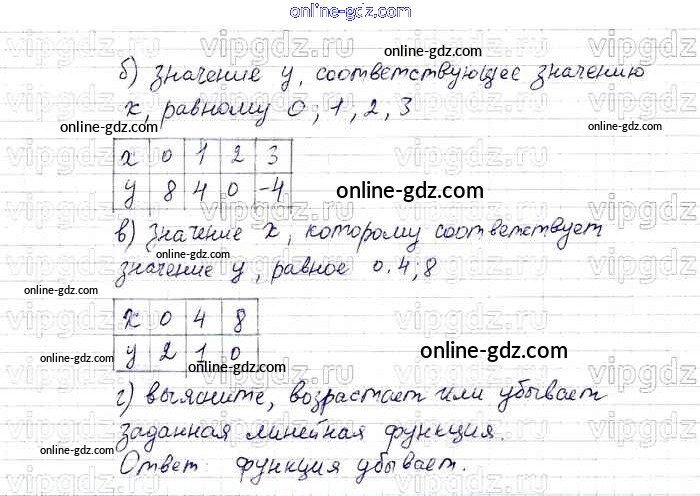 online-gdz.com
vipgdz.ru vipgdz.ru vipgdz.ru
online-gdz.com
б) значение y, соответствующее значению
x, равному 0; 1, 2, 3
online-gdz.com
online-gdz.com
x 0 1 2 3
y 8 4 0 -4
online-gdz.com
в) значение x, которому соответствует
online-gdz.com
значение y, равное 0.4;8
online-gdz.com
x 0 4 8
y 2 1 0
online-gdz.com
online-gdz.com
online-gdz.com
г) выясните, возрастает или убывает
заданная линейная функция.
online-gdz.com
online-gdz.com
Ответ: функция убывает.